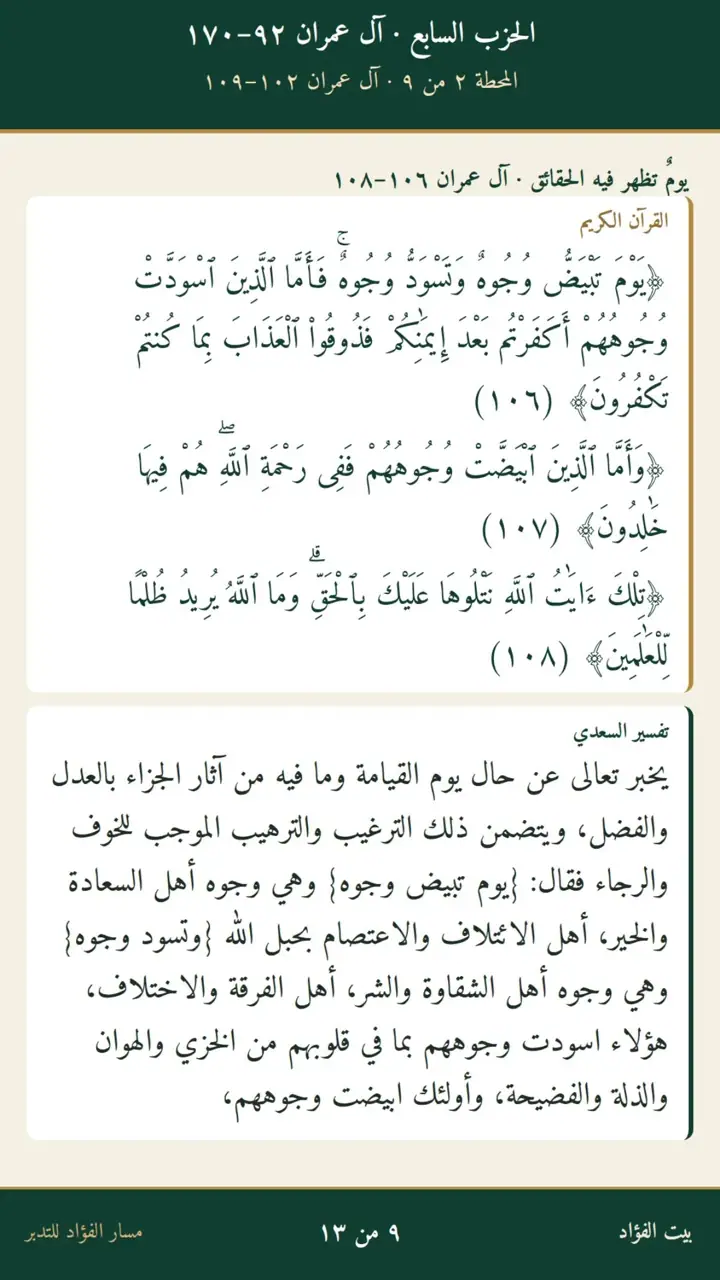 الحزب السابع · آل عمران ٩٢–١٧٠
المحطة ٢ من ٩ · آل عمران ١٠٢–١٠٩
يومٌ تظهر فيه الحقائق · آل عمران ١٠٦–١٠٨
القرآن الكريم
﴿يَوْمَ تَبْيَضُّ وُجُوهٌ وَتَسْوَدُّ وُجُوهٌ ۚ فَأَمَّا ٱلَّذِينَ ٱسْوَدَّتْ
وُجُوهُهُمْ أَكَفَرْتُم بَعْدَ إِيمَٰنِكُمْ فَذُوقُوا۟ ٱلْعَذَابَ بِمَا كُنتُمْ
تَكْفُرُونَ﴾ (١٠٦)
﴿وَأَمَّا ٱلَّذِينَ ٱبْيَضَّتْ وُجُوهُهُمْ فَفِى رَحْمَةِ ٱللَّهِ ۖ هُمْ فِيهَا
خَٰلِدُونَ﴾ (١٠٧)
﴿تِلْكَ ءَايَٰتُ ٱللَّهِ نَتْلُوهَا عَلَيْكَ بِٱلْحَقِّ ۗ وَمَا ٱللَّهُ يُرِيدُ ظُلْمًا
لِّلْعَٰلَمِينَ﴾ (١٠٨)
تفسير السعدي
يخبر تعالى عن حال يوم القيامة وما فيه من آثار الجزاء بالعدل
والفضل، ويتضمن ذلك الترغيب والترهيب الموجب للخوف
والرجاء فقال: {يوم تبيض وجوه} وهي وجوه أهل السعادة
والخير، أهل الائتلاف والاعتصام بحبل الله {وتسود وجوه}
وهي وجوه أهل الشقاوة والشر، أهل الفرقة والاختلاف،
هؤلاء اسودت وجوههم بما في قلوبهم من الخزي والهوان
والذلة والفضيحة، وأولئك ابيضت وجوههم،
بيت الفؤاد
٩ من ١٣
مسار الفؤاد للتدبر